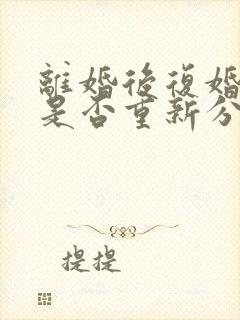 離婚後復婚
是否重新分
提提